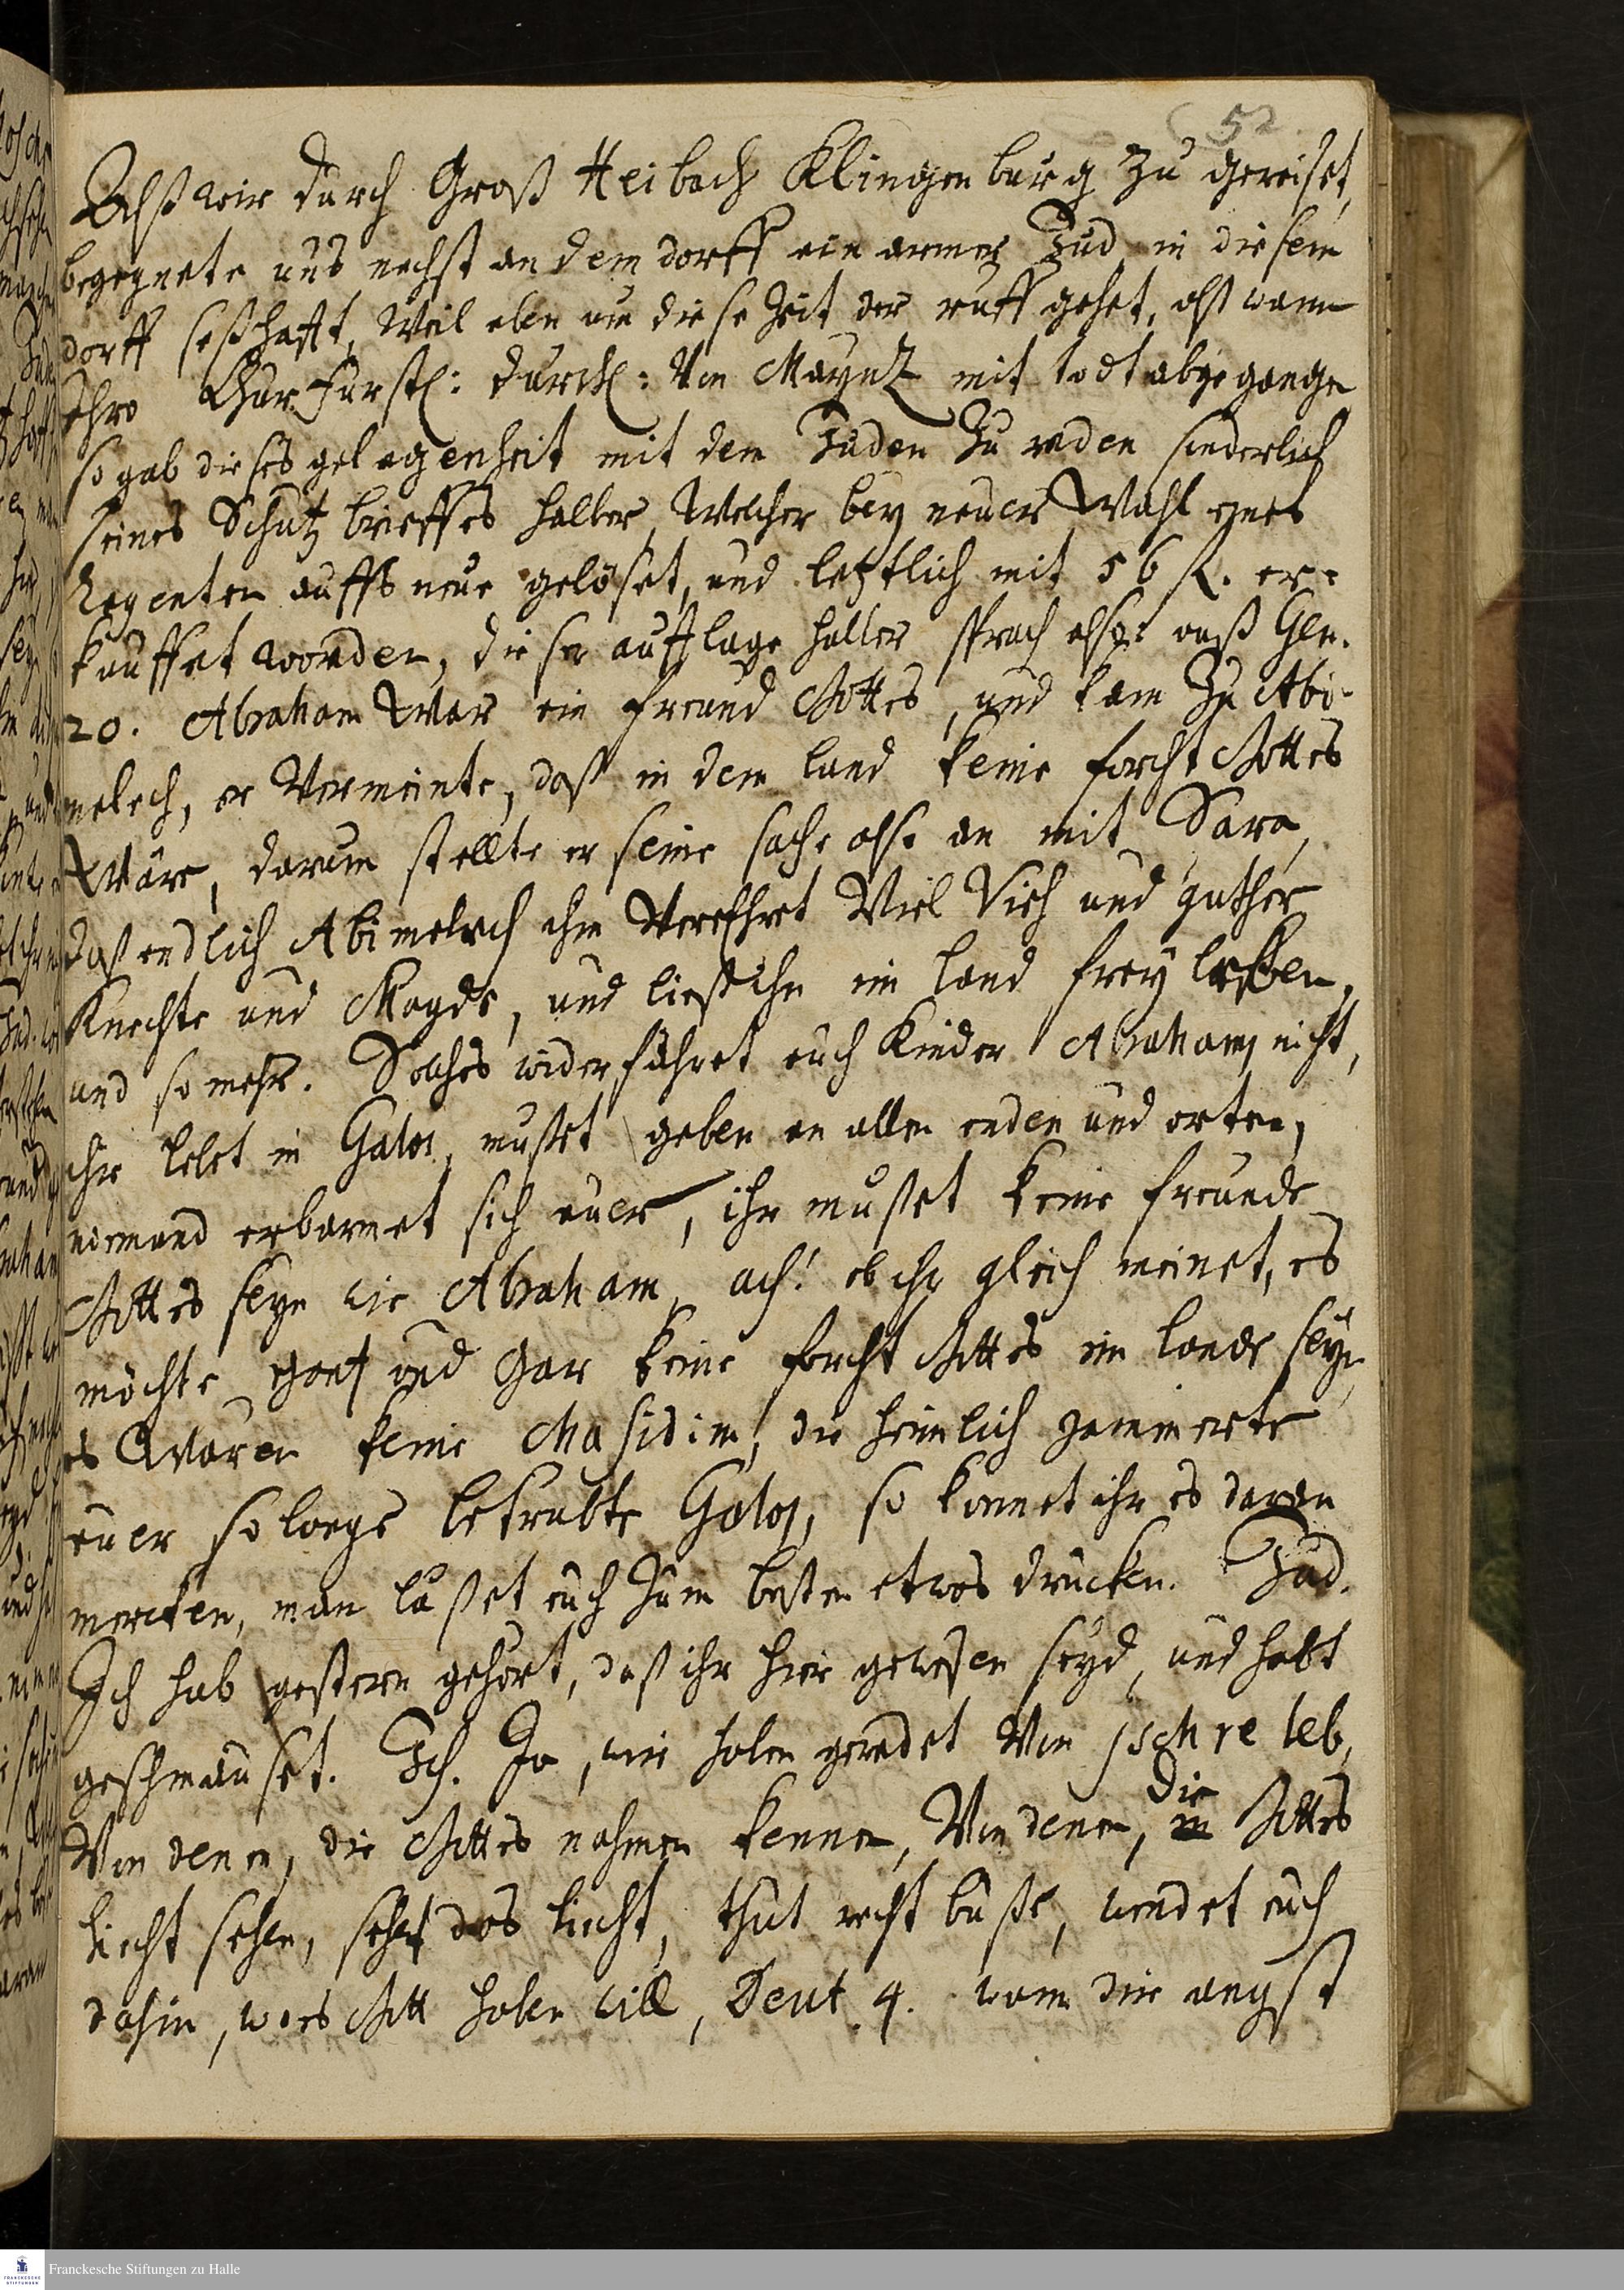 52
Alß wir durch Groß Heibach Klingenburg zu gereiset,
begegnete uns nechst an dem dorff ein armer Jud in diesem
dorff seßhafft, Weil eben um diese Zeit der ruff gehet, alß wann
Ihro Churfürstl: Durchl: Von Maynz mit todt abgegangen
so gab dieses gelegenheit mit dem Juden zu reden sonderlich
seines Schutz brieffes halber, Welcher bey neuer Wahl eines
Regenten auffs neue gelöset, und letztlich mit 56 R. er-
kauffet worden, dieser aufflage halber sprach ich auß Gen.
20. Abraham War ein freund Gottes, und kam zu Abi-
melech, er Vermeinte, daß in dem land keine forcht Gottes
Wäre, darum stellte er seine sache also an mit Sara,
daß endlich Abimelech ihm Verehret Viel Vieh und güther
Knechte und Mägde, und ließ ihn im land frey leben,
und so mehr. Solches widerfähret euch Kinder Abrahams nicht,
ihr lebt in Galos, mußet geben an allen enden und orten,
niemand erbarmet sich euer, ihr mußet keine freunde
Gottes seyn wie Abraham, ach! ob ihr gleich meinet, es
möchte gantz und gar keine forcht Gottes im lande seyn,
es Waren keine Chasidim, die heimlich jammerte
euer so lange betrubte Galos, so konnet ihr es daran
mercken, man laßet euch zum besten etwas drucken. Jud.
Ich hab gestern gehört, daß ihr hier gewesen seyd, und habt
geschmauset. Ich. Ja, wir haben geredet Von jschre leb,
Von denen, die Gottes nahmen kennen, Von denen, die Gottes
Liecht sehen, sehet das Liecht, thut recht buße, wendet euch
dahin, wo es Gott haben will, Deut. 4. wann dir angst
Franckesche Stiftungen zu Halle
FRANCKESCHE
STIFTUNGEN